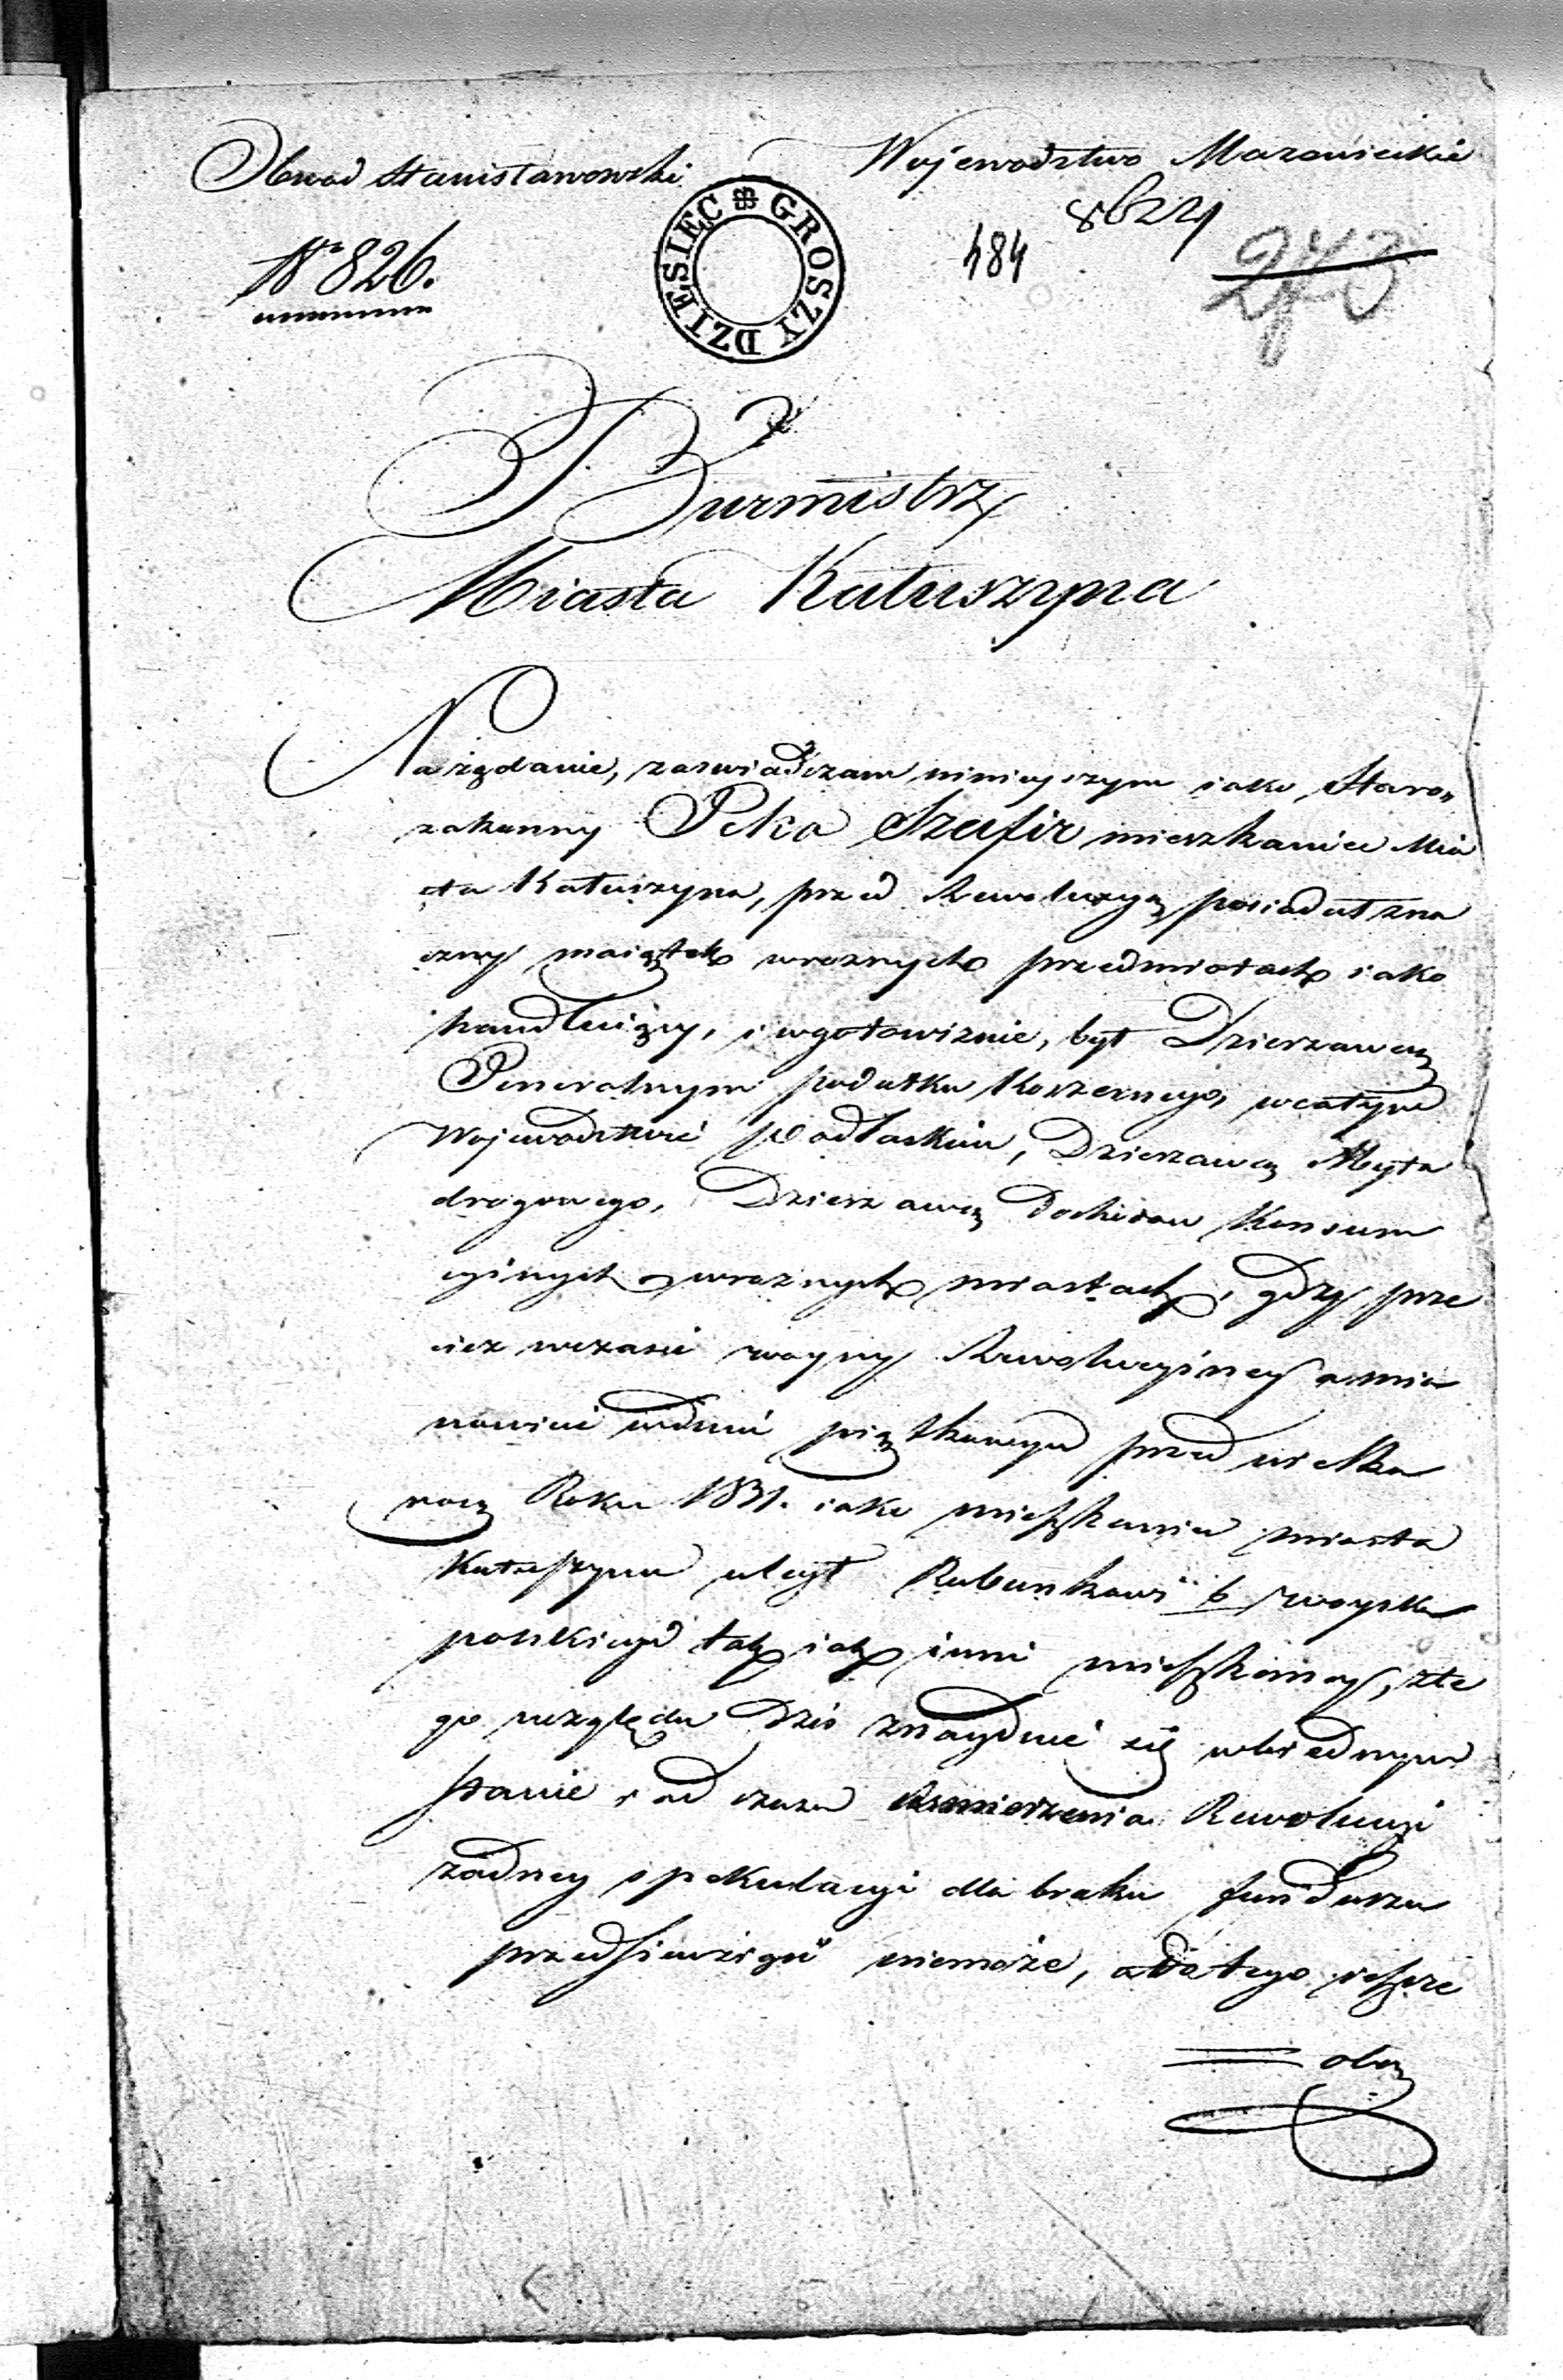 Obwod Stanisławowski
Wojewodztwo Mazowieckie
No 826.
DZIESIEC GROSZY
484
273
Burmistrz
Miasta Kałuszyna
Na żądanie, zaswiadczam ninieyszym iako, Staro„
zakonny Szafir mieszkaniec Mia
sta Kałuszyna, przed Rewolucyą posiadał zna
czny maiątek wroznych przedmiotach iako
handluiący, i wgotowiznie, był Dzierzawcą
Generalnym podatku Koszernego, wcałym
Wojewodztwie Podlaskim, Dzierzawcą Myta
drogowego, Dzierzawcą Dochodow Konsum
cyinych wroznych miastach, gdy prze
ciez wczasie woyny Rewolucyiney a mia
nowicie wdniu piątkowym przed wielka
nocą Roku 1831. iako mieszkaniec miasta
Kałuszyna uległ Rabunkowi b. woyska
polskiego tak iak inni mieszkancy, zte
go względu dzis znayduie się wbiednym
stanie i od czasu usmierzenia Rewolucyi
żadney spekulacyi dla braku funduszu
przedsiewziąć niemoże, adlatego iespre
obą